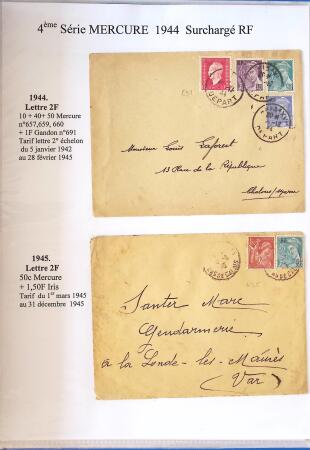 4ème Série MERCURE 1944 Surchargé RF
1944.
Lettre 2F
10 + 40+ 50 Mercure
n°657,659, 660
+ 1F Gandon n°691
Tarif lettre 2° échelon
du 5 janvier 1942
au 28 février 1945
DEPART
Monsieur Louis Laforest
13 Rue de la République
1945.
Lettre 2F
50c Mercure
+ 1,50F Iris
Tarif du 1er mars 1945
au 31 décembre 1945
Santer Marc
Gendarmerie
à la Londe-les-Maures
(Var)